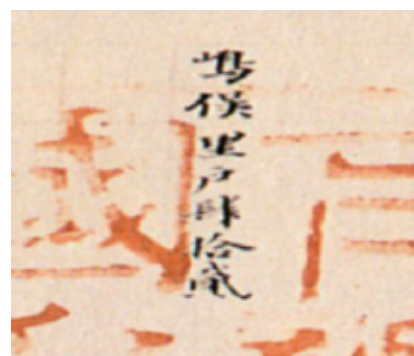 嶋俣里戸肆拾貳